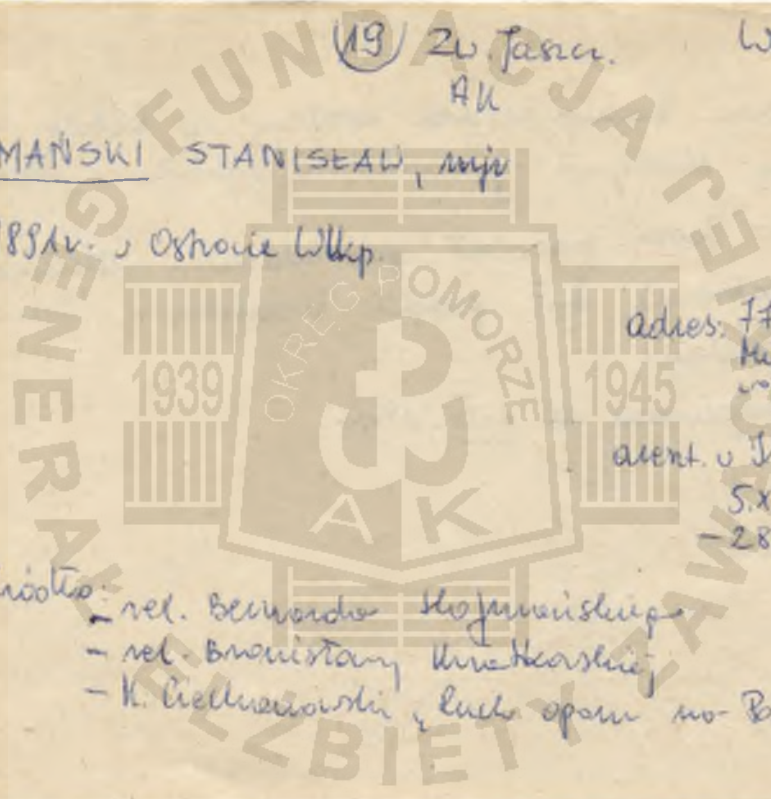 19 Zw. Jaszcz. W
AK
MAŃSKI STANISŁAW, mjr
891 r. w Ostrowie Wlkp.
adres: 77
areszt. w I
5.X
- 28
ródło:
- rel. Bernarda
- rel. Bronisławy Kwiatkowskiej
- K. Ciechanowski „Ruch oporu na Po
FUNDACJA GENERAŁ ELŻBIETY ZAWAC
OKRĘG POMORZE
1939 1945
AK